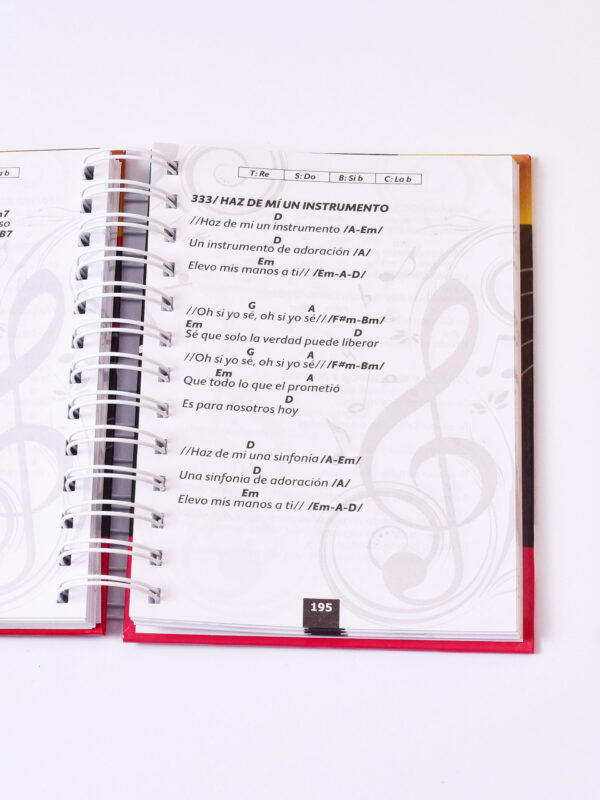 a b
m7
so
B7
T: Re S: Do B: Si b C: La b
333/ HAZ DE MÍ UN INSTRUMENTO
D
//Haz de mi un instrumento /A-Em/
D
Un instrumento de adoración /A/
Em
Elevo mis manos a ti// /Em-A-D/
G A
//Oh si yo sé, oh si yo sé// /F#m-Bm/
Em D
Sé que solo la verdad puede liberar
G A
//Oh si yo sé, oh si yo sé// /F#m-Bm/
Em A
Que todo lo que el prometió
D
Es para nosotros hoy
D
//Haz de mi una sinfonía /A-Em/
D
Una sinfonía de adoración /A/
Em
Elevo mis manos a ti// /Em-A-D/
195